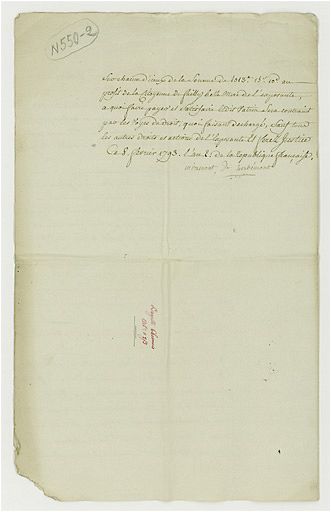 N550-2
Sur chacun d'eux de la Somme de 1313.# 15.s 10.d au
profit de la Citoyenne de belle Mere de l'exposante,
a quoi faire payer et satisfaire ledit Sera contraint
par les voyes de droit, quoi faisant dechargé, Sauf tous
les autres droits et actions de l'Exposante. Et ferez Justice
Ce 8. fevrier 1793. l'an 2. de la republique française,